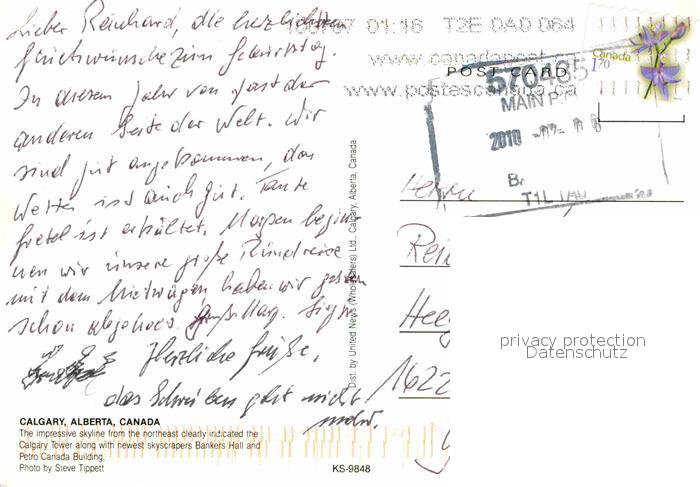 Lieber Reinhard, die herzlichsten
Glückwünsche zum Geburtstag.
In diesem Jahr von fast der
anderen Seite der Welt. Wir
sind gut angekommen, das
Wetter ist auch gut. Tante
Gretel ist erkältet. Morgen begin
nen wir unsere große Rundreise
mit dem Mietwagen haben wir gestern
schon abgeholt.
Herzliche Grüße,
das Schreiben geht nicht
mehr.
CALGARY, ALBERTA, CANADA
The impressive skyline from the northeast clearly indicated the
Calgary Tower along with newest skyscrapers Bankers Hall and
Petro Canada Building.
Photo by Steve Tippett
KS-9848
Dist. by United News (Wholesalers) Ltd., Calgary, Alberta, Canada
01:16 T2E 0A0 064
www.canadapost.ca
www.postescanada.ca
POST CARD
570495
MAIN P
2010
Br
T1L
Canada
1.70
Herrn
Rein
Hee
1622
privacy protection
Datenschutz